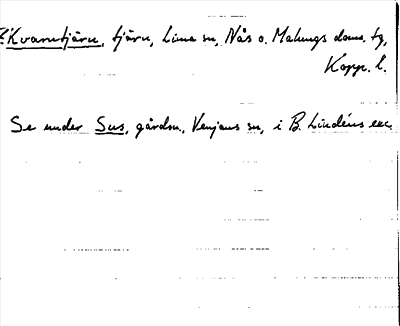 ? Kvarntjärn, tjärn, Lima sn, Nås o. Malungs doms. tg,
Kopp. l.
Se under Sus, gårdsn., Venjans sn, i B. Lindéns exc.